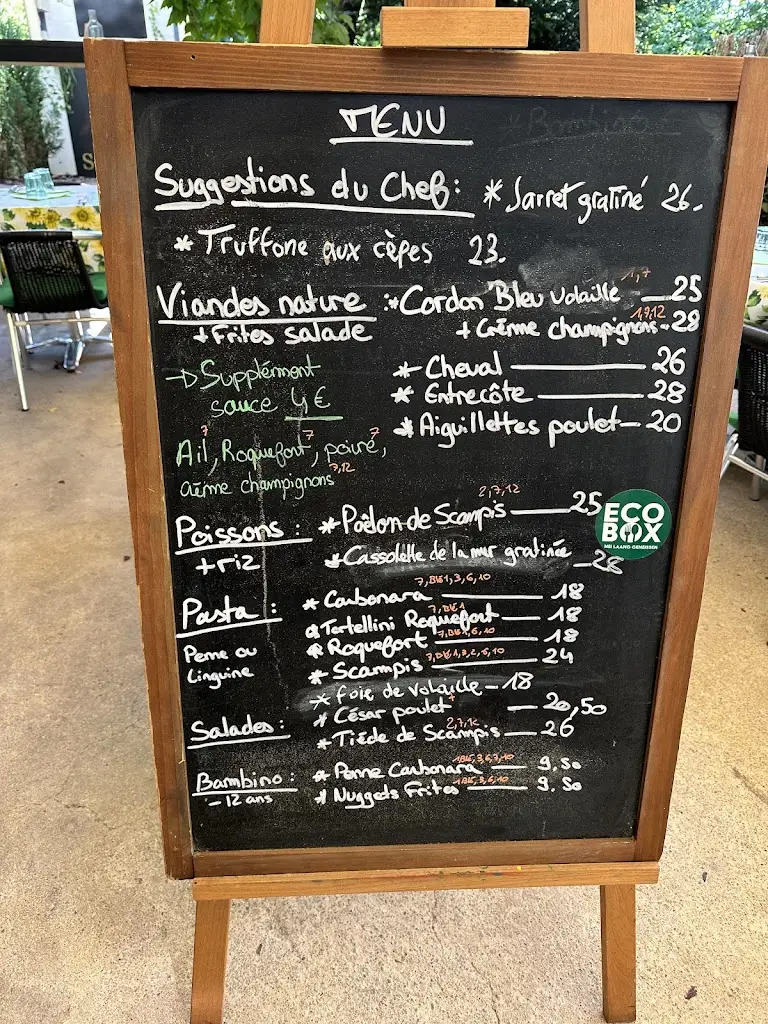 MENU
Suggestions du Chef : * Jarret gratiné 26.-
* Truffone aux cèpes 23.
Viandes nature : * Cordon Bleu Volaille 1,7 — 25
+ Frites salade + Crème champignons 1,7,12 - 28
→ Supplément * Cheval — 26
sauce 4€ * Entrecôte — 28
* Aiguillettes poulet — 20
Ail,7 Roquefort,7 poivre,7
crème champignons 7,12
Poissons : * Poêlon de Scampis 2,7,12 — 25
+ riz * Cassolette de la mer gratinée — 28
Pasta : * Carbonara 7, Blé 1,3,6,10 — 18
* Tortellini Roquefort 7, Blé 1 — 18
Penne ou * Roquefort — 18
Linguine * Scampis — 24
* Foie de volaille - 18
Salades : * César poulet — 20,50
* Tiède de Scampis 2,7,12 — 26
Bambino : * Penne Carbonara — 9.50
- 12 ans * Nuggets Frites — 9.50
ECO
BOX
MEI LAANG GENEISSEN